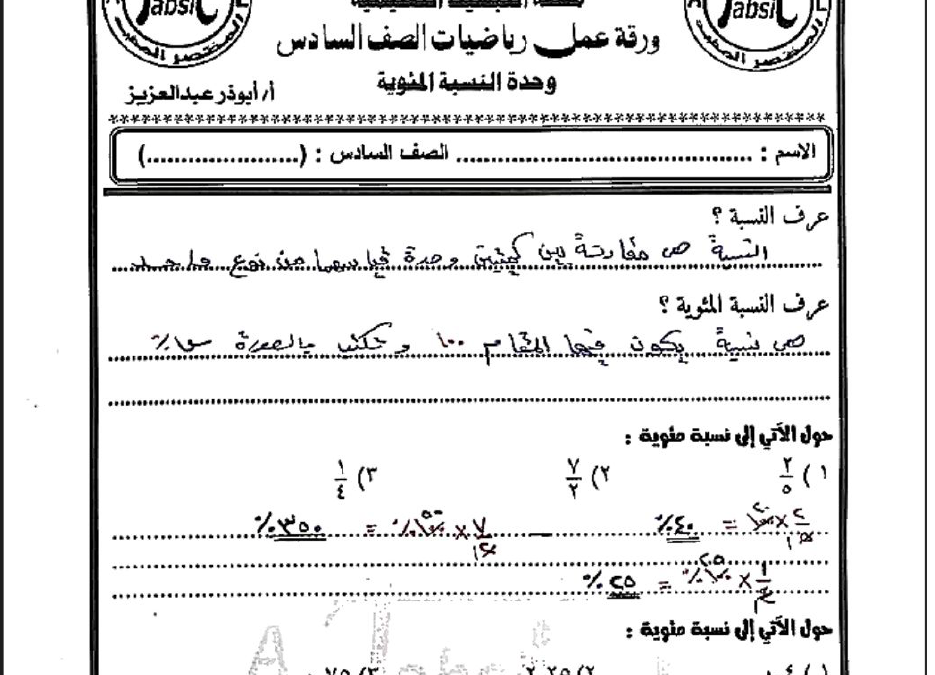 Jabsi
المختصر المفيد
Jabsi
المختصر المفيد
ورقة عمل رياضيات الصف السادس
وحدة النسبة المئوية
أ/أبوذر عبدالعزيز
الاسم : ........................................ الصف السادس : (......................)
عرف النسبة ؟
النسبة هي مقارنة بين كميتين وحدة قياسهما من نوع واحد
عرف النسبة المئوية ؟
هي نسبة يكون فيها المقام ١٠٠ وتكتب بالصورة س٪
حول الآتي إلى نسبة مئوية :
١) ٢/٥ ٢) ٧/٢ ٣) ١/٤
٢/٥ × ١٠٠٪ = ٤٠٪ ٧/٢ × ١٠٠٪ = ٣٥٠٪
١/٤ × ١٠٠٪ = ٢٥٪
حول الآتي إلى نسبة مئوية :